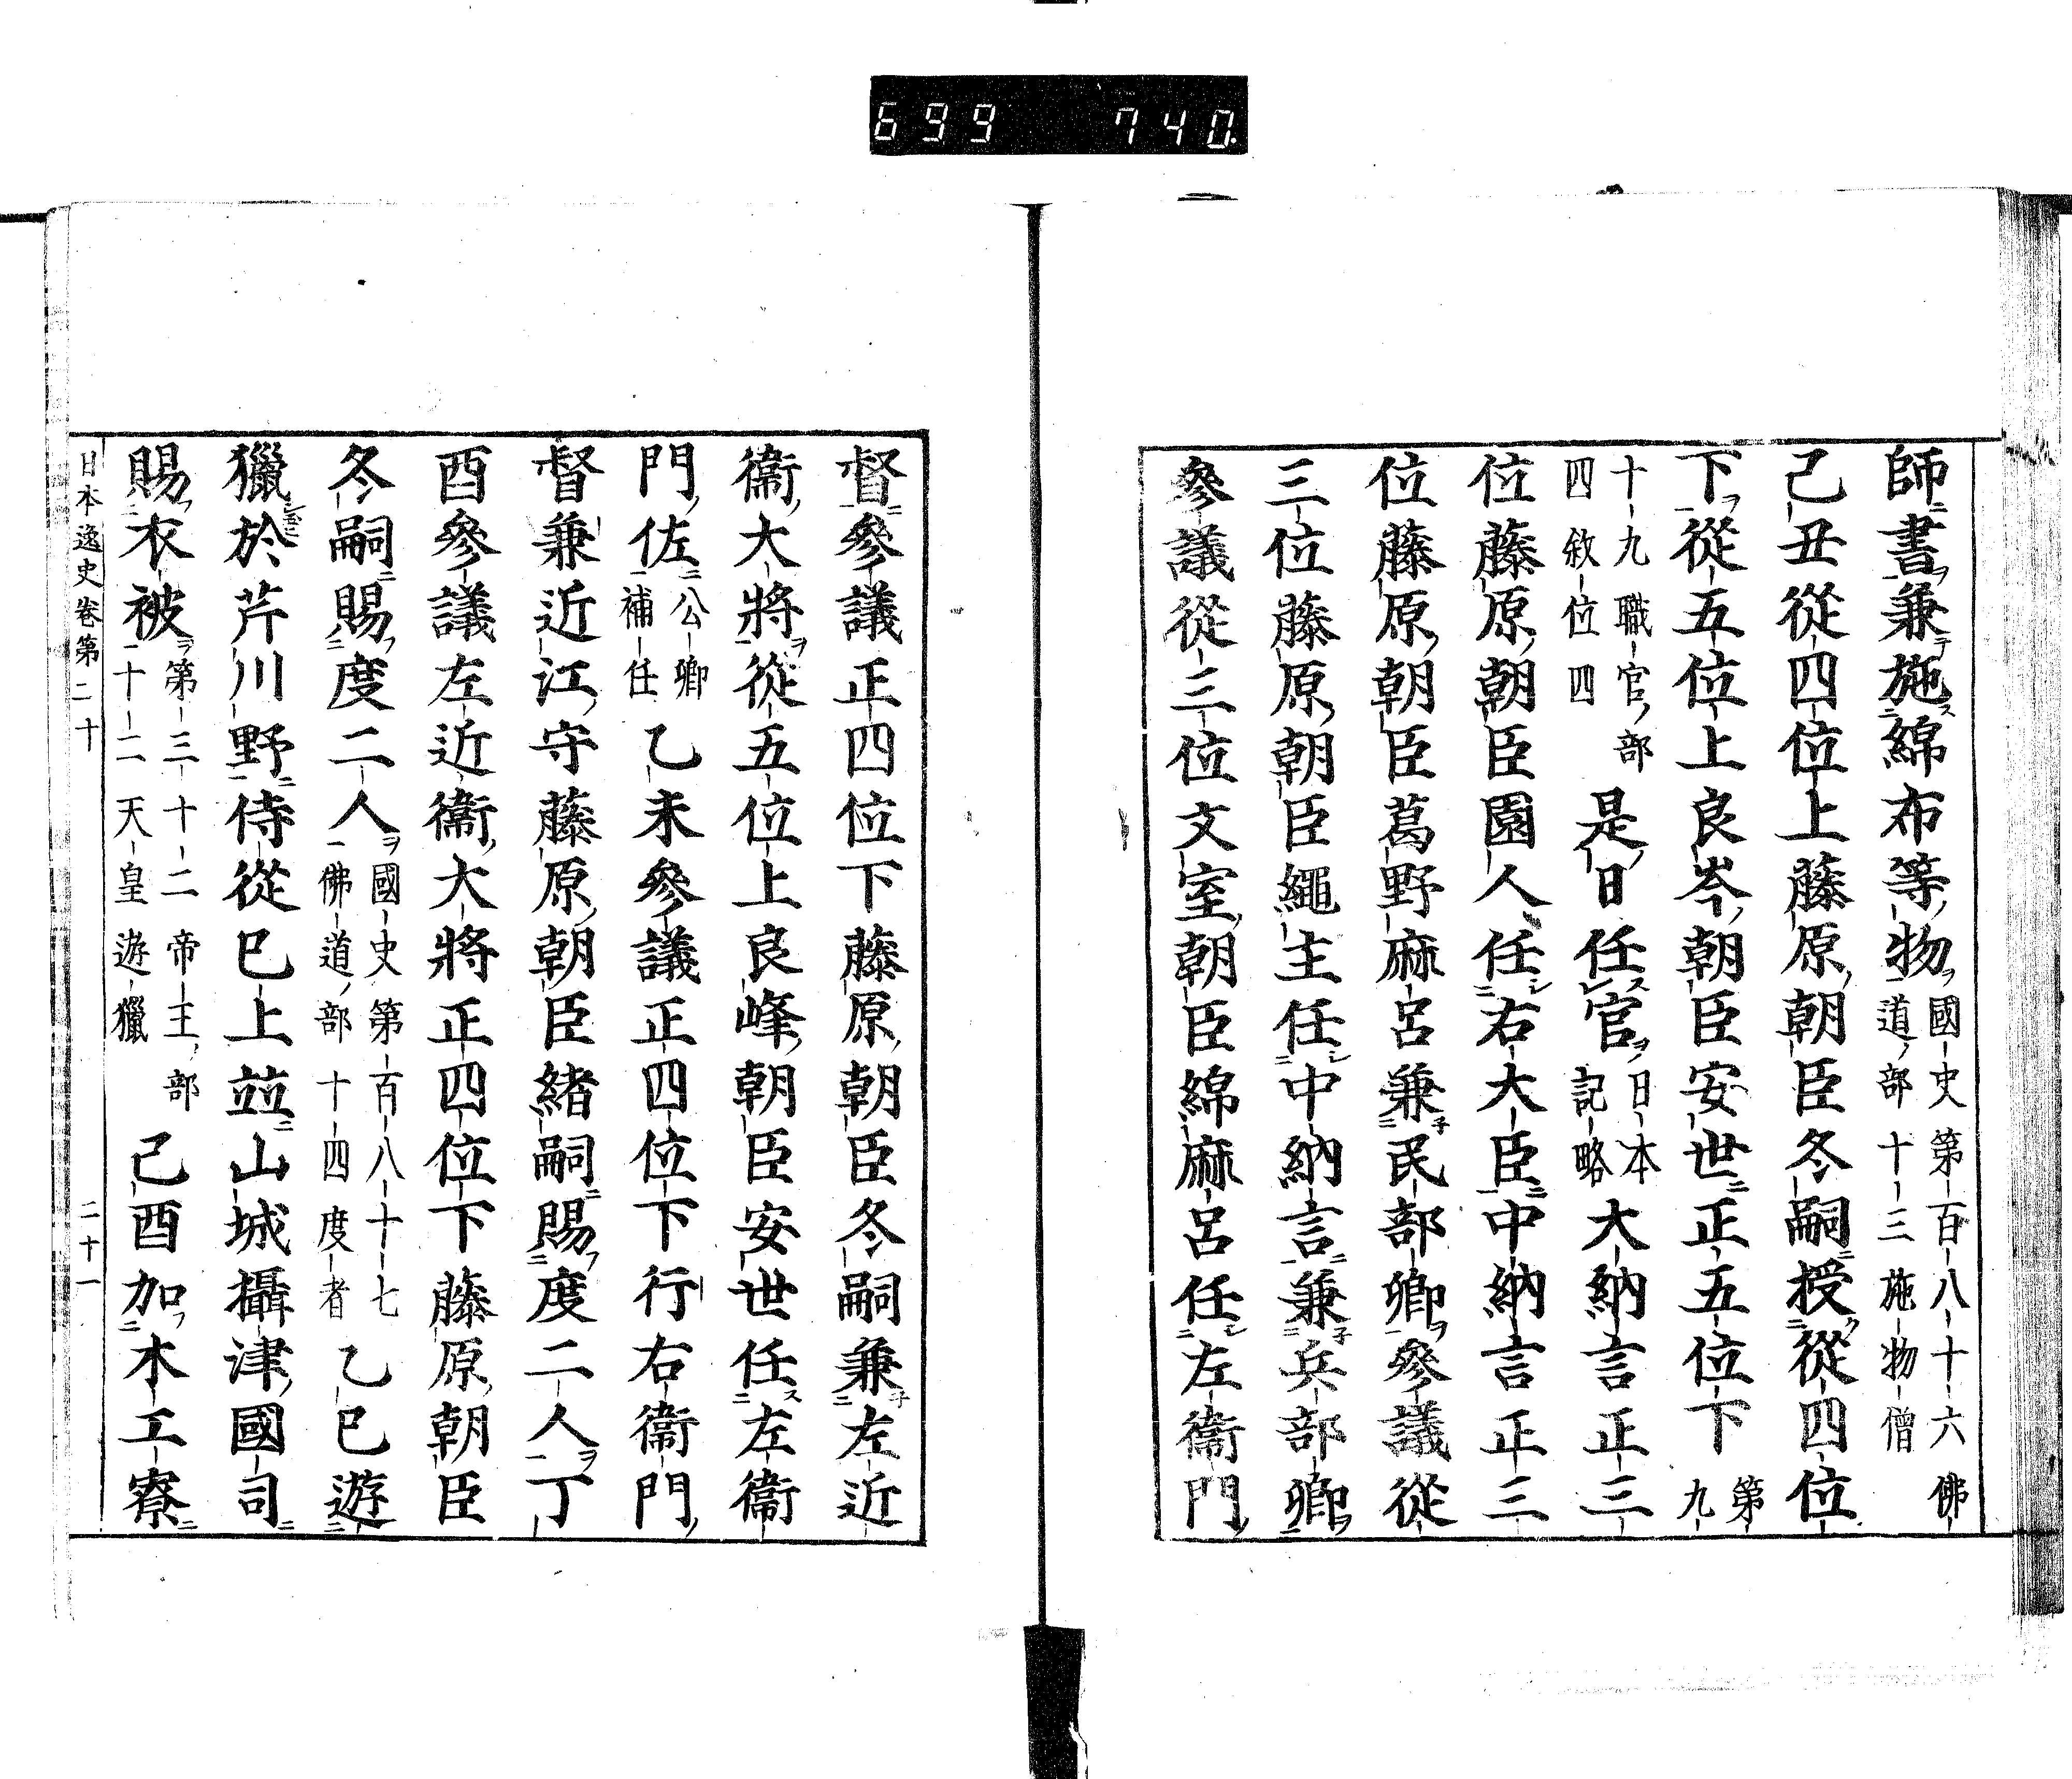 699 740
師書兼施綿布等物國史第百八十六佛道部十三施物僧
己丑從四位上藤原朝臣冬嗣授從四位
下從五位上良岑朝臣安世正五位下第九
十九職官部四敘位四是日任官日本記略大納言正三
位藤原朝臣園人任右大臣中納言正三
位藤原朝臣葛野麻呂兼民部卿參議從
三位藤原朝臣繩主任中納言兼兵部卿
參議從三位文室朝臣綿麻呂任左衞門
督參議正四位下藤原朝臣冬嗣兼左近
衞大將從五位上良峰朝臣安世任左衞
門佐公卿補任乙未參議正四位下行右衞門
督兼近江守藤原朝臣緒嗣賜度二人丁
酉參議左近衞大將正四位下藤原朝臣
冬嗣賜度二人國史第百八十七佛道部十四度者乙巳遊
獵於芹川野侍從巳上竝山城攝津國司
賜衣被第三十二帝王部十二天皇遊獵己酉加木工寮
日本逸史卷第二十 二十一